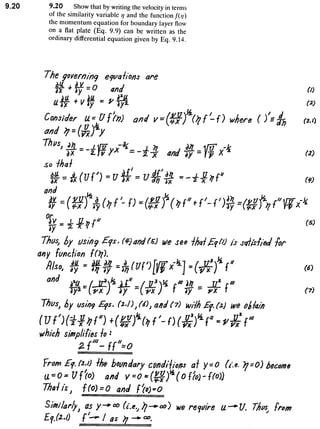 9.20
9.20 Show that by writing the velocity in terms
of the similarity variable η and the function f(η)
the momentum equation for boundary layer flow
on a flat plate (Eq. 9.9) can be written as the
ordinary differential equation given by Eq. 9.14.
The governing equations are
∂u/∂x + ∂v/∂y = 0 and (1)
u ∂u/∂x + v ∂u/∂y = ν ∂²u/∂y² (2)
Consider u = U f'(η) and v = (νU/4x)^½ (η f' - f) where ( )' ≡ d/dη (2.1)
and η = (U/νx)^½ y
Thus, ∂η/∂x = -½ √(U/ν) y x^-3/2 = -½ η/x and ∂η/∂y = √(U/ν) x^-½ (2)
so that
∂u/∂x = ∂/∂x (U f') = U ∂f'/∂x = U df'/dη ∂η/∂x = -½ U/x η f'' (4)
and
∂v/∂y = (νU/4x)^½ ∂/∂y (η f' - f) = (νU/4x)^½ (η f'' + f' - f') ∂η/∂y = (νU/4x)^½ η f'' √(U/ν) x^-½
or
∂v/∂y = ½ U/x η f'' (5)
Thus, by using Eqs. (4) and (5) we see that Eq (1) is satisfied for
any function f(η).
Also, ∂u/∂y = ∂u/∂η ∂η/∂y = ∂/∂η (U f') [√(U/ν) x^-½] = (U³/νx)^½ f'' (6)
and
∂²u/∂y² = (U³/νx)^½ ∂f''/∂y = (U³/νx)^½ f''' ∂η/∂y = U²/νx f''' (7)
Thus, by using Eqs. (2.1), (6), and (7) with Eq. (2) we obtain
(U f')(-½ U/x η f'') + (νU/4x)^½ (η f' - f)(U³/νx)^½ f'' = ν U²/νx f'''
which simplifies to:
2 f''' - f f'' = 0
From Eq. (2.1) the boundary conditions at y = 0 (i.e. η = 0) become
u = 0 = U f'(0) and v = 0 = (νU/4x)^½ (0 f'(0) - f(0))
That is, f(0) = 0 and f'(0) = 0
Similarly, as y → ∞ (i.e., η → ∞) we require u → U. Thus, from
Eq. (2.1) f' → 1 as η → ∞.